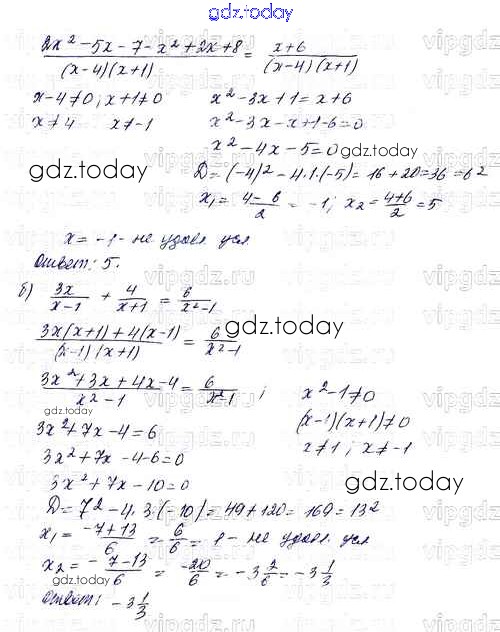 gdz.today
(2x² - 5x - 7 - x² + 2x + 8)/((x-4)(x+1)) = (x+6)/((x-4)(x+1))
x-4≠0; x+1≠0 x² - 3x + 1 = x + 6
x≠4 x≠-1 x² - 3x - x + 1 - 6 = 0
x² - 4x - 5 = 0 gdz.today
gdz.today D = (-4)² - 4·1·(-5) = 16 + 20 = 36 = 6²
x₁ = (4-6)/2 = -1; x₂ = (4+6)/2 = 5
x = -1 - не удовл усл
Ответ: 5.
vipgdz.ru
б) 3x/(x-1) + 4/(x+1) = 6/(x²-1)
(3x(x+1) + 4(x-1))/((x-1)(x+1)) = 6/(x²-1) gdz.today
(3x² + 3x + 4x - 4)/(x²-1) = 6/(x²-1); x² - 1 ≠ 0
gdz.today (x-1)(x+1) ≠ 0
3x² + 7x - 4 = 6 x≠1; x≠-1
3x² + 7x - 4 - 6 = 0
3x² + 7x - 10 = 0 gdz.today
D = 7² - 4·3·(-10) = 49 + 120 = 169 = 13²
x₁ = (-7+13)/6 = 6/6 = 1 - не удовл усл
x₂ = (-7-13)/6 = -20/6 = -3 2/6 = -3 1/3
gdz.today
Ответ: -3 1/3